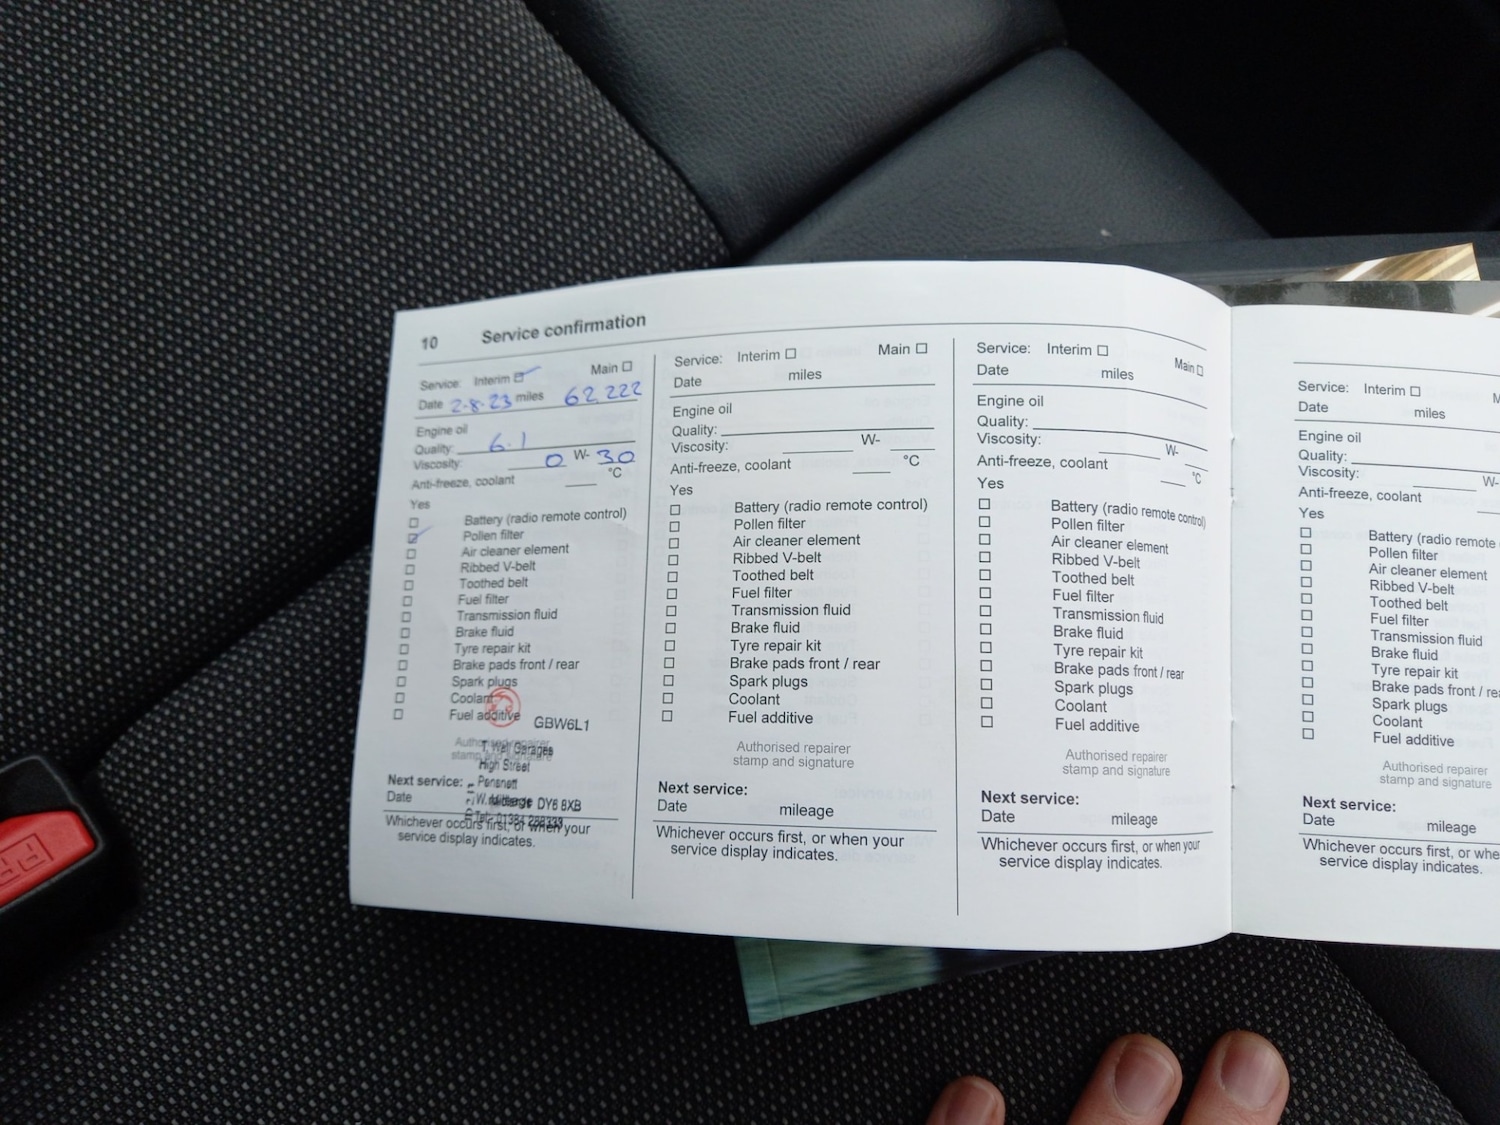 10 Service confirmation
Service: Interim Main
Date 2-8-23 miles 62222
Engine oil
Quality: 6.1
Viscosity: 0 W- 30
Anti-freeze, coolant °C
Yes
Battery (radio remote control)
Pollen filter
Air cleaner element
Ribbed V-belt
Toothed belt
Fuel filter
Transmission fluid
Brake fluid
Tyre repair kit
Brake pads front / rear
Spark plugs
Coolant
Fuel additive GBW6L1
Authorised repairer
stamp and signature
T. Wall Garages
High Street
Pensnett
DY6 8XB
Next service:
Date
Whichever occurs first, or when your
service display indicates.
Service: Interim Main
Date miles
Engine oil
Quality:
Viscosity: W-
Anti-freeze, coolant °C
Yes
Battery (radio remote control)
Pollen filter
Air cleaner element
Ribbed V-belt
Toothed belt
Fuel filter
Transmission fluid
Brake fluid
Tyre repair kit
Brake pads front / rear
Spark plugs
Coolant
Fuel additive
Authorised repairer
stamp and signature
Next service:
Date mileage
Whichever occurs first, or when your
service display indicates.
Service: Interim Main
Date miles
Engine oil
Quality:
Viscosity: W-
Anti-freeze, coolant °C
Yes
Battery (radio remote control)
Pollen filter
Air cleaner element
Ribbed V-belt
Toothed belt
Fuel filter
Transmission fluid
Brake fluid
Tyre repair kit
Brake pads front / rear
Spark plugs
Coolant
Fuel additive
Authorised repairer
stamp and signature
Next service:
Date mileage
Whichever occurs first, or when your
service display indicates.
Service: Interim M
Date miles
Engine oil
Quality:
Viscosity: W-
Anti-freeze, coolant
Yes
Battery (radio remote
Pollen filter
Air cleaner element
Ribbed V-belt
Toothed belt
Fuel filter
Transmission fluid
Brake fluid
Tyre repair kit
Brake pads front / rea
Spark plugs
Coolant
Fuel additive
Authorised repairer
stamp and signature
Next service:
Date mileage
Whichever occurs first, or whe
service display indicates.